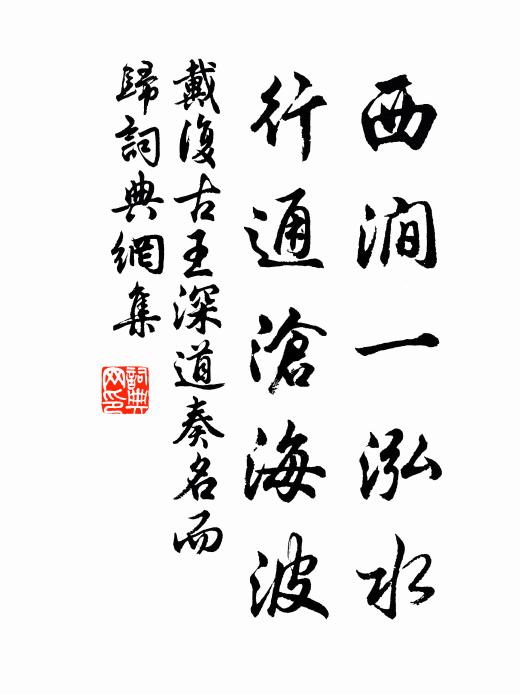 西澗一泓水
行通滄海波
戴復古王深道奏名而
歸詞典網集
詞典
网印